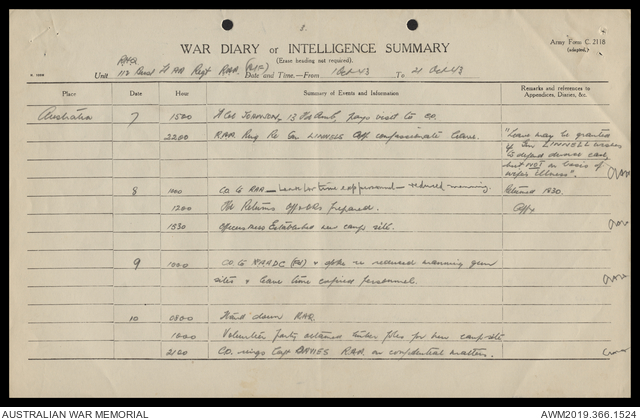 2.
Army Form C. 2118
(adapted.)
WAR DIARY or INTELLIGENCE SUMMARY
(Erase heading not required).
RHQ
Unit 112 Aust Lt AA Regt RAA (AIF) Date and Time.—From 1 Oct 43 To 21 Oct 43
Place Date Hour Summary of Events and Information Remarks and references to Appendices, Diaries, &c.
Australia 7 1500 Lt Col JOHNSON, 13 pays visit to CO.
2200 RAA Ring Re Gnr LINNELL's compassionate leave. "Leave may be granted
if Gnr LINNELL wishes
to defend divorce case
but NOT on basis of
wife's illness".
8 1000 CO to RAA — Leave for time expired personnel — reduced manning. Returned 1830.
1200 Returns prepared.
1830 Officers Mess Established new camp site.
9 1000 CO to (M) & re reduced manning gun
sites & leave time expired personnel.
10 0800 Hand down RAQ
1000 Volunteer party obtained timber for new camp site
2100 CO. rings Capt DAVIES RAA on confidential matters.
AUSTRALIAN WAR MEMORIAL
AWM2019.366.1524